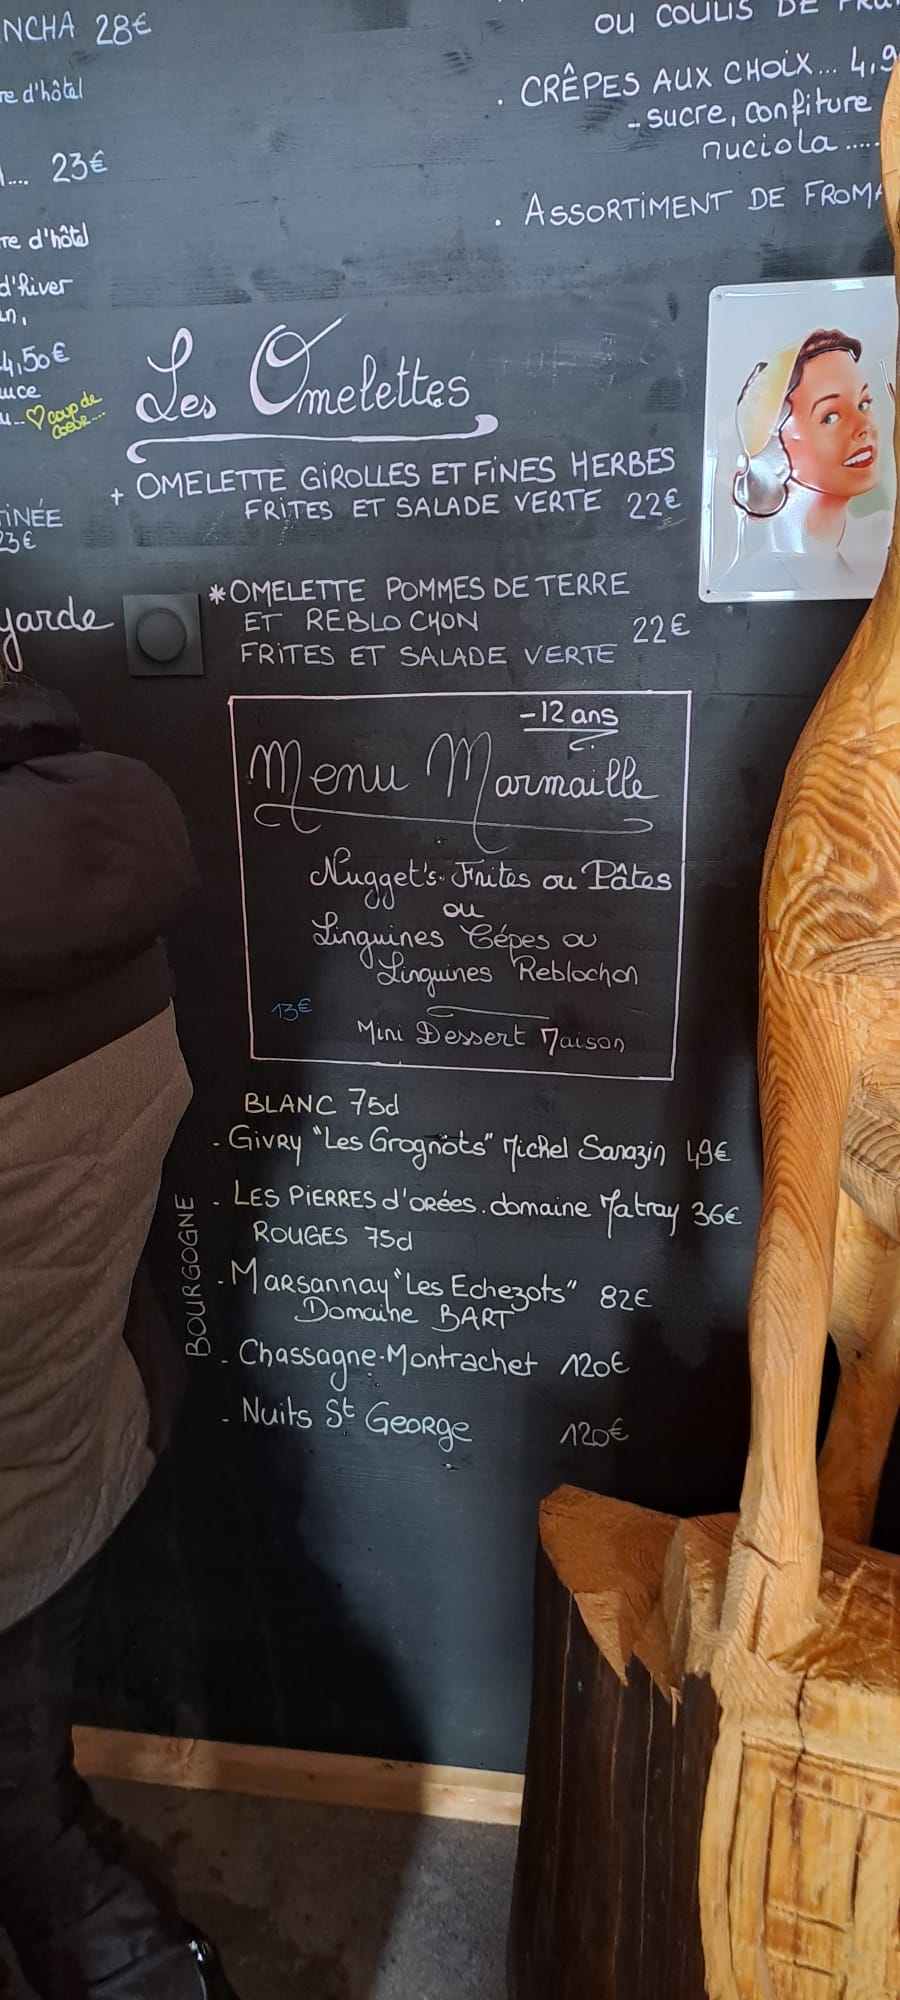 NCHA 28€
re d'hôtel
.... 23€
re d'hôtel
d'River
4,50€
uce
coup de
coeur....
TINÉE
23€
garde
OU COULIS DE
. CRÊPES AUX CHOIX... 4,9
- sucre, confiture
nuciola .....
. ASSORTIMENT DE FROMA
Les Omelettes
+ OMELETTE GIROLLES ET FINES HERBES
FRITES ET SALADE VERTE 22€
*OMELETTE POMMES DE TERRE
ET REBLOCHON
22€
FRITES ET SALADE VERTE
-12 ans
Menu Marmaille
Nugget's. Frites ou Pâtes
ou
Linguines Cépes ou
Linguines Reblochon
13€
Mini Dessert Maison
BOURGOGNE
BLANC 75d
- Givry "Les Grognots" Michel Sarazin 49€
. LES PIERRES d'ORÉES. domaine Matray 36€
ROUGES 75d
- Marsannay "Les Echezots" 82€
Domaine BART
- Chassagne-Montrachet 120€
- Nuits St George 120€